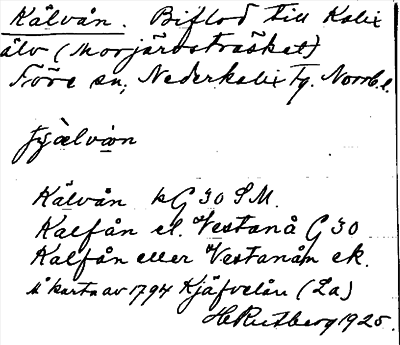 Kälvån. Biflod till Kalix
älv (Morjärvsträsket)
Töre sn, Nederkalix Tg. Norrb. l.
Kälvån kG 30 SM.
Kalfån el. Vestanå G 30
Kalfån eller Vestanån ek.
Å karta av 1794 Kjäfvelån (La)
H Rutberg 1925.